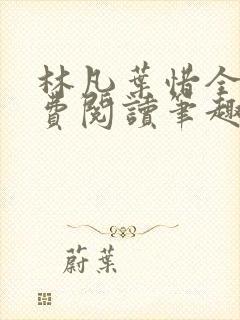 林凡葉惜全
費閱讀筆趣
蔚葉